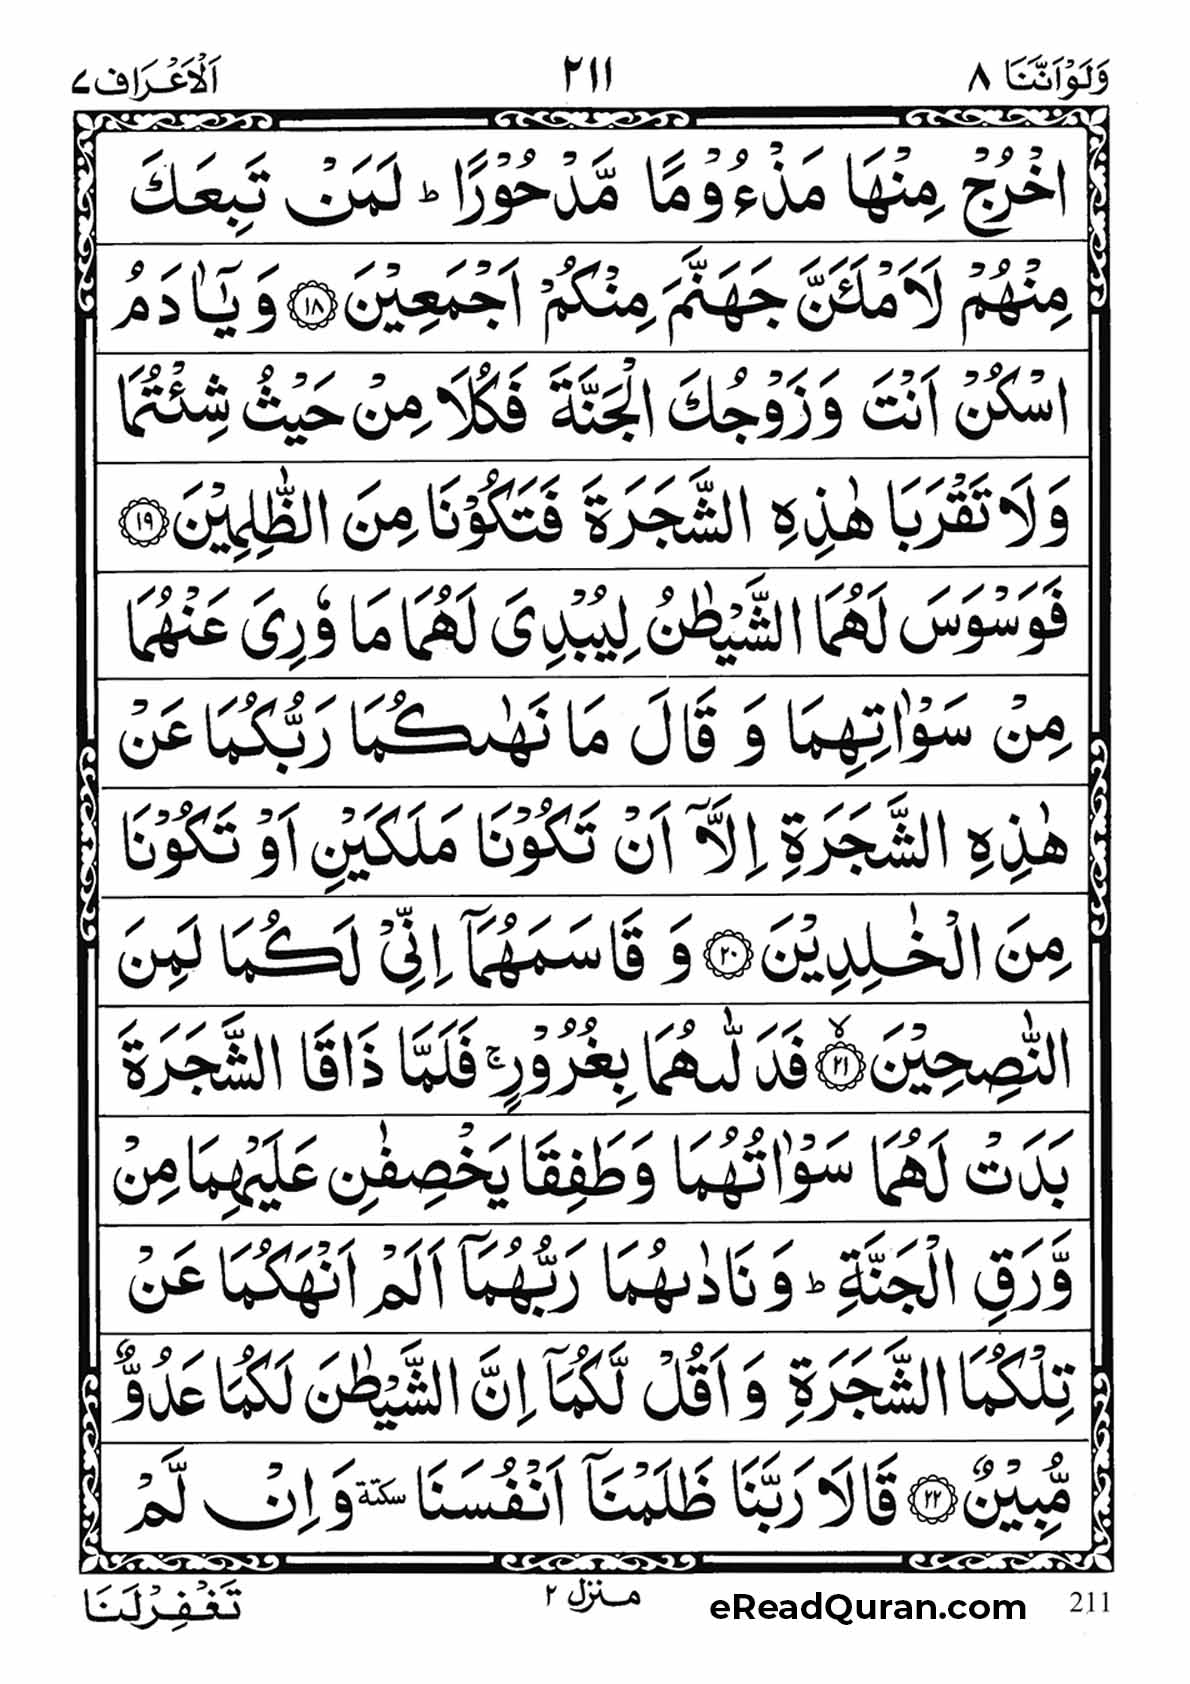 وَلَوْ اَنَّنَا ٨ ٢١١ اَلْاَعْرَاف ٧
اخْرُجْ مِنْهَا مَذْءُوْمًا مَّدْحُوْرًا ؕ لَمَنْ تَبِعَكَ
مِنْهُمْ لَاَمْلَـَٔنَّ جَهَنَّمَ مِنْكُمْ اَجْمَعِيْنَ ١٨ وَيٰۤاٰدَمُ
اسْكُنْ اَنْتَ وَزَوْجُكَ الْجَنَّةَ فَكُلَا مِنْ حَيْثُ شِئْتُمَا
وَلَا تَقْرَبَا هٰذِهِ الشَّجَرَةَ فَتَكُوْنَا مِنَ الظّٰلِمِيْنَ ١٩
فَوَسْوَسَ لَهُمَا الشَّيْطٰنُ لِيُبْدِىَ لَهُمَا مَا وٗرِىَ عَنْهُمَا
مِنْ سَوْاٰتِهِمَا وَ قَالَ مَا نَهٰٮكُمَا رَبُّكُمَا عَنْ
هٰذِهِ الشَّجَرَةِ اِلَّاۤ اَنْ تَكُوْنَا مَلَكَيْنِ اَوْ تَكُوْنَا
مِنَ الْخٰلِدِيْنَ ٢٠ وَ قَاسَمَهُمَاۤ اِنِّىْ لَكُمَا لَمِنَ
النّٰصِحِيْنَ ٢١ ۙ فَدَلّٰٮهُمَا بِغُرُوْرٍ ۚ فَلَمَّا ذَاقَا الشَّجَرَةَ
بَدَتْ لَهُمَا سَوْاٰتُهُمَا وَطَفِقَا يَخْصِفٰنِ عَلَيْهِمَا مِنْ
وَّرَقِ الْجَنَّةِ ؕ وَ نَادٰٮهُمَا رَبُّهُمَاۤ اَلَمْ اَنْهَكُمَا عَنْ
تِلْكُمَا الشَّجَرَةِ وَ اَقُلْ لَّكُمَاۤ اِنَّ الشَّيْطٰنَ لَكُمَا عَدُوٌّ
مُّبِيْنٌ ٢٢ قَالَا رَبَّنَا ظَلَمْنَاۤ اَنْفُسَنَا سكتة وَ اِنْ لَّمْ
211 eReadQuran.com منزل ٢ تَغْفِرْ لَنَا